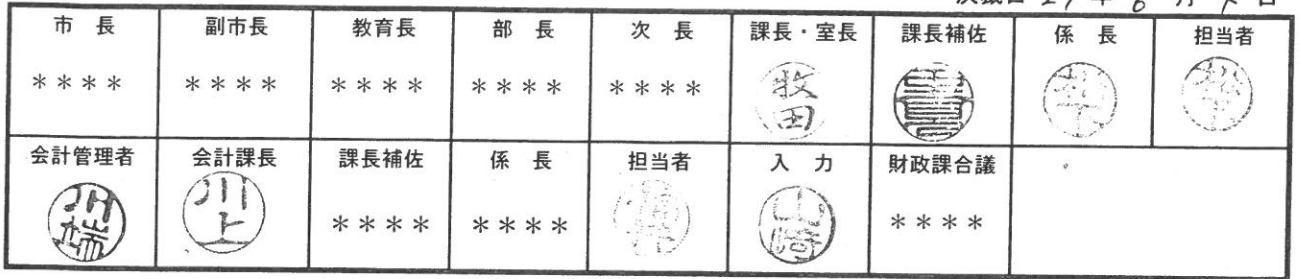 年 月 日
市 長 副市長 教育長 部 長 次 長 課長・室長 課長補佐 係 長 担当者
＊＊＊＊ ＊＊＊＊ ＊＊＊＊ ＊＊＊＊ ＊＊＊＊ 牧田 松下 松下
会計管理者 会計課長 課長補佐 係 長 担当者 入 力 財政課合議
川端 川上 ＊＊＊＊ ＊＊＊＊ 山崎 ＊＊＊＊